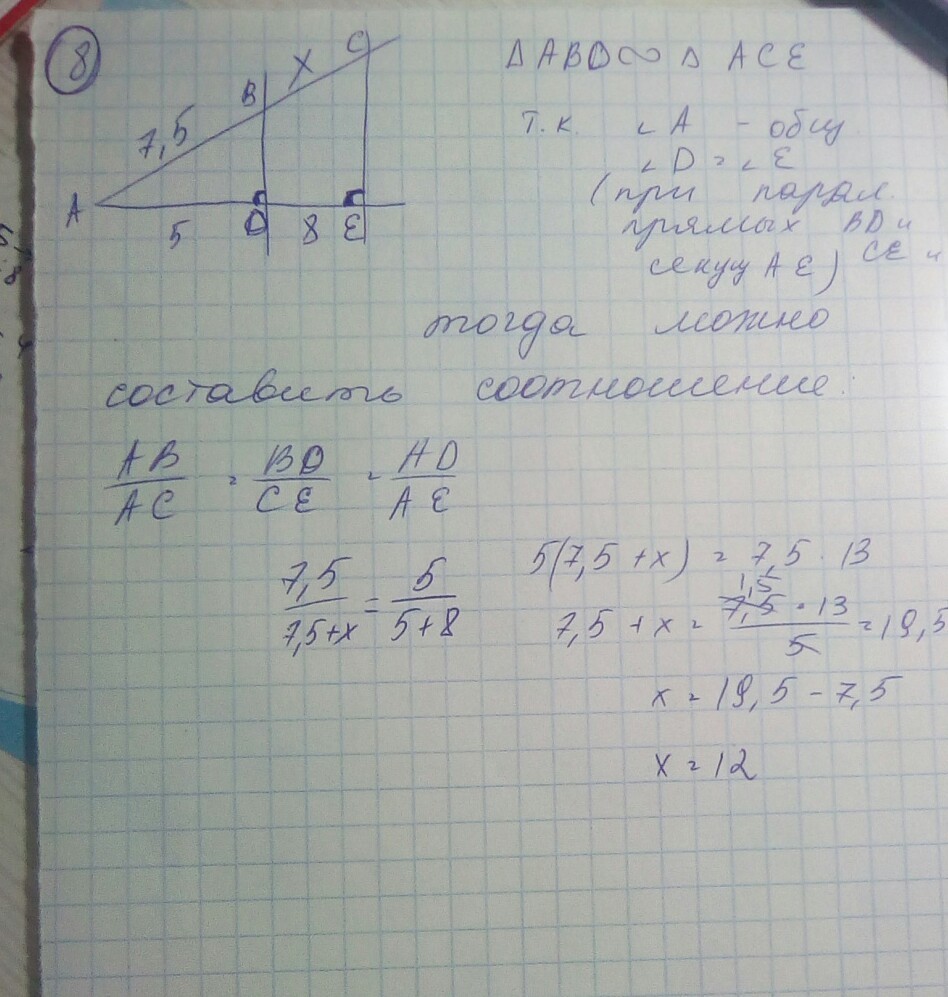 8
C
X
B
7,5
A
5
D
8
E
ΔABD∞ Δ ACE
т.к. ∠A - общ.
∠D = ∠E
(при парал.
прямых BD и
CE и
секущ AE)
тогда можно
составить соотношение:
AB/AC = BD/CE = AD/AE
7,5/7,5+x = 5/5+8
5(7,5 +x) = 7,5 · 13
1,5
7,5 + x = 7,5 · 13/5 = 19,5
x = 19,5 - 7,5
x = 12